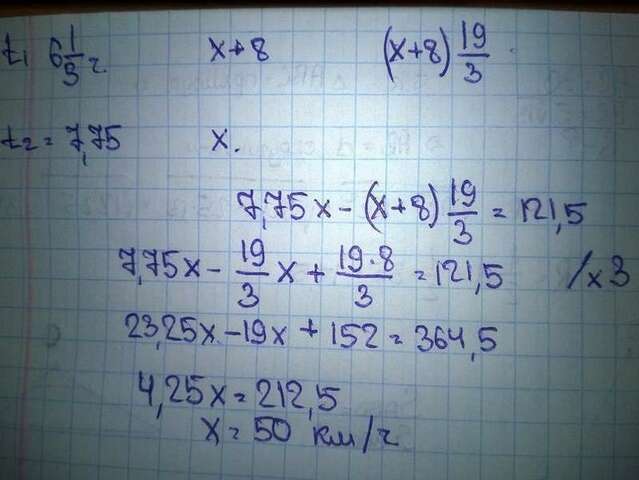 t₁ 6 1/3 ч x+8 (x+8) 19/3
t₂ = 7,75 x.
7,75x - (x+8) 19/3 = 121,5
7,75x - 19/3 x + 19·8/3 = 121,5 /x3
23,25x - 19x + 152 = 364,5
4,25x = 212,5
x = 50 км/ч